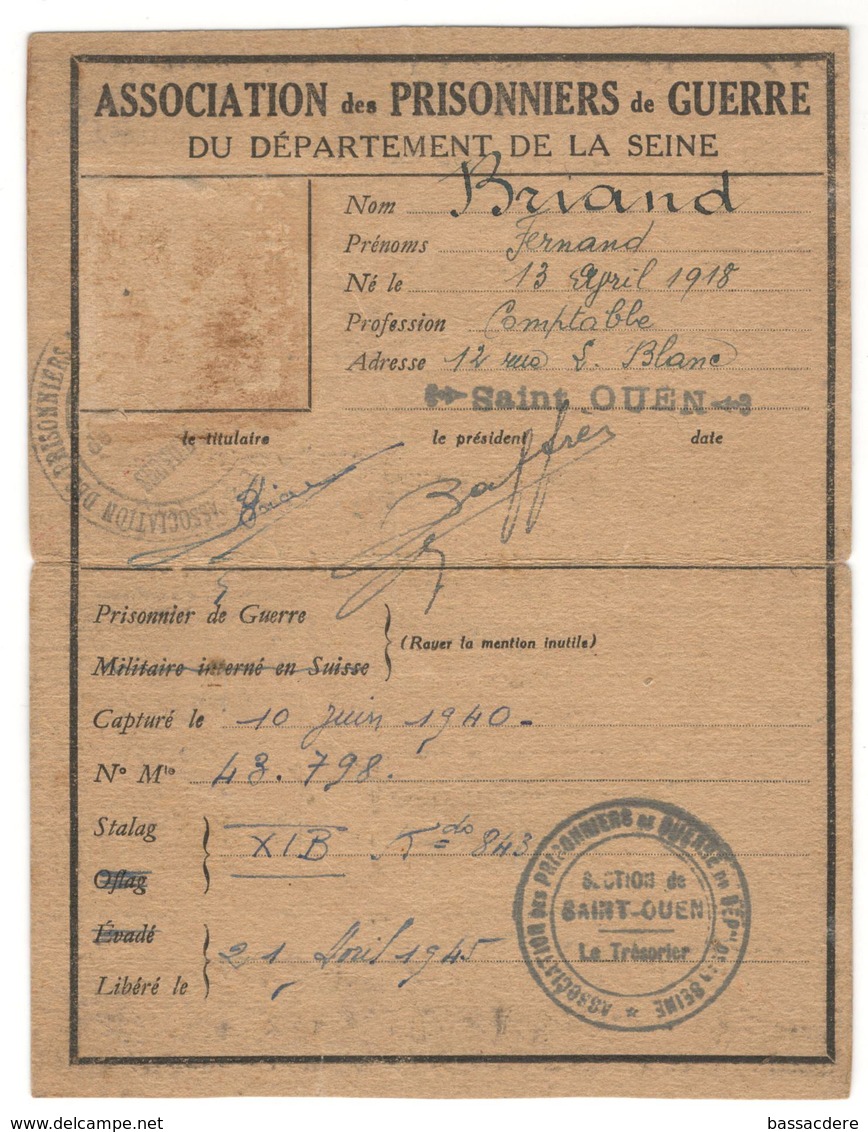 ASSOCIATION des PRISONNIERS de GUERRE
DU DÉPARTEMENT DE LA SEINE
Nom Briand
Prénoms Fernand
Né le 13 April 1918
Profession Comptable
Adresse 12 rue L. Blanc
Saint OUEN
le titulaire le président date
Baffrès
ASSOCIATION DES PRISONNIERS
Prisonnier de Guerre
Militaire interné en Suisse
(Rayer la mention inutile)
Capturé le 10 Juin 1940-
N° Mle 43.798.
Stalag XIB Kdo 843
Oflag
Évadé
Libéré le 21 Avril 1945
ASSOCIATION des PRISONNIERS de GUERRE du DÉPt de la SEINE
SECTION de
SAINT-OUEN
Le Trésorier
www.delcampe.net
bassacdere